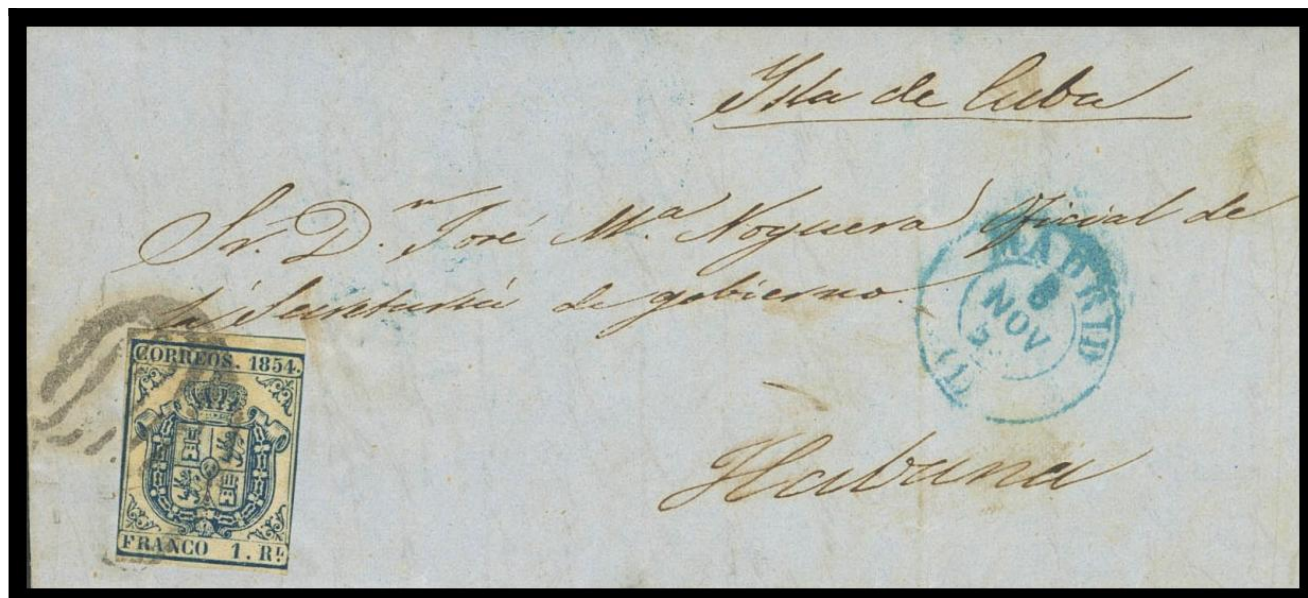 Isla de Cuba
Sr. Dn. José Ma. Noguera Oficial de
la Secretaría de gobierno.
MADRID
NOV
(1)
CORREOS. 1854.
Habana
FRANCO 1. Rl.